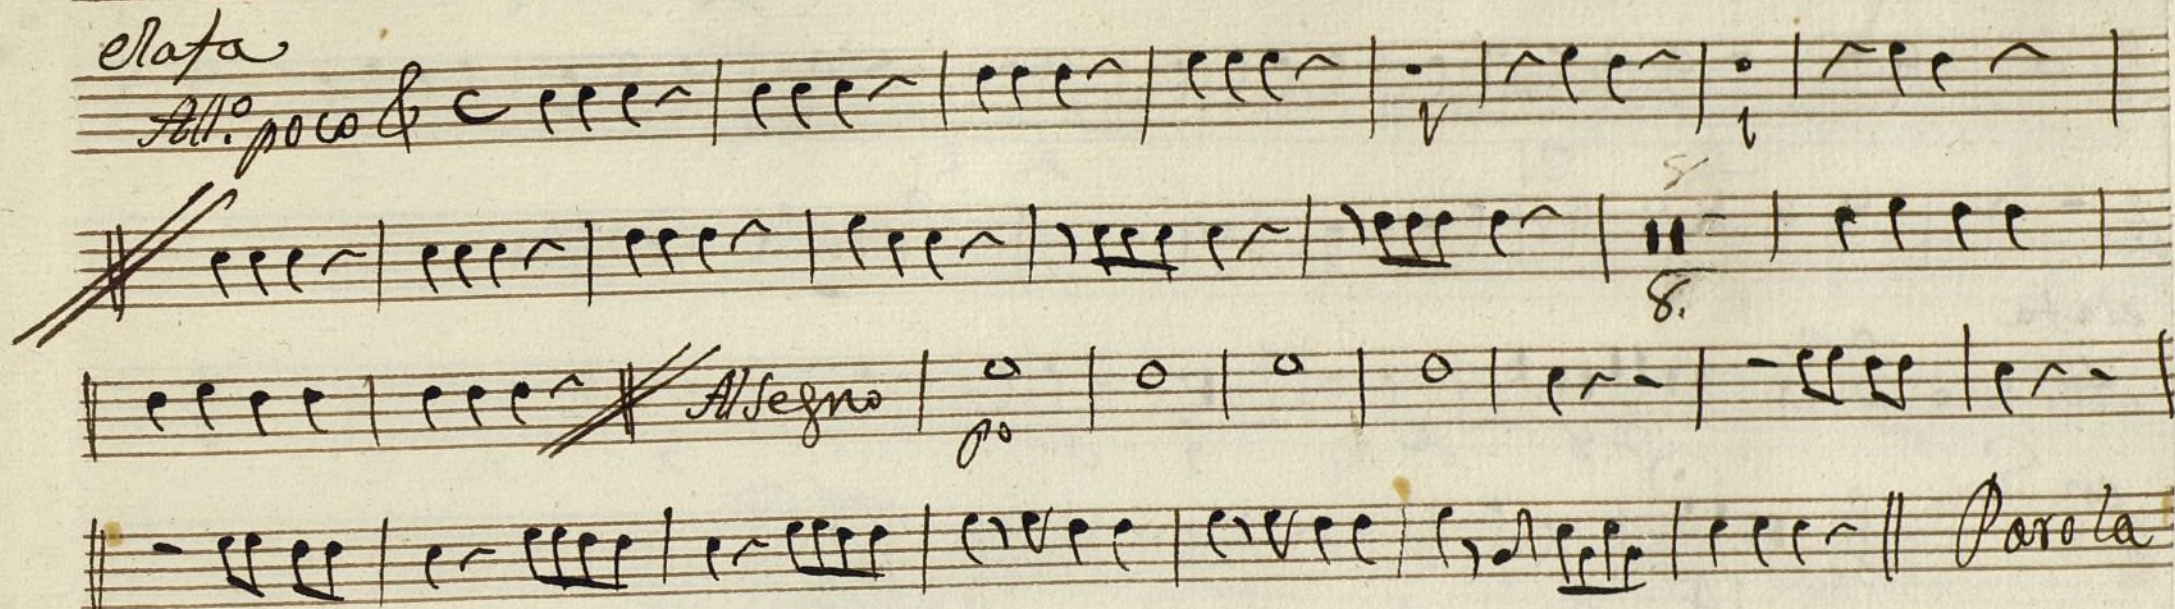 elafa
All.º poco
8.
Al Segno
po
Parola